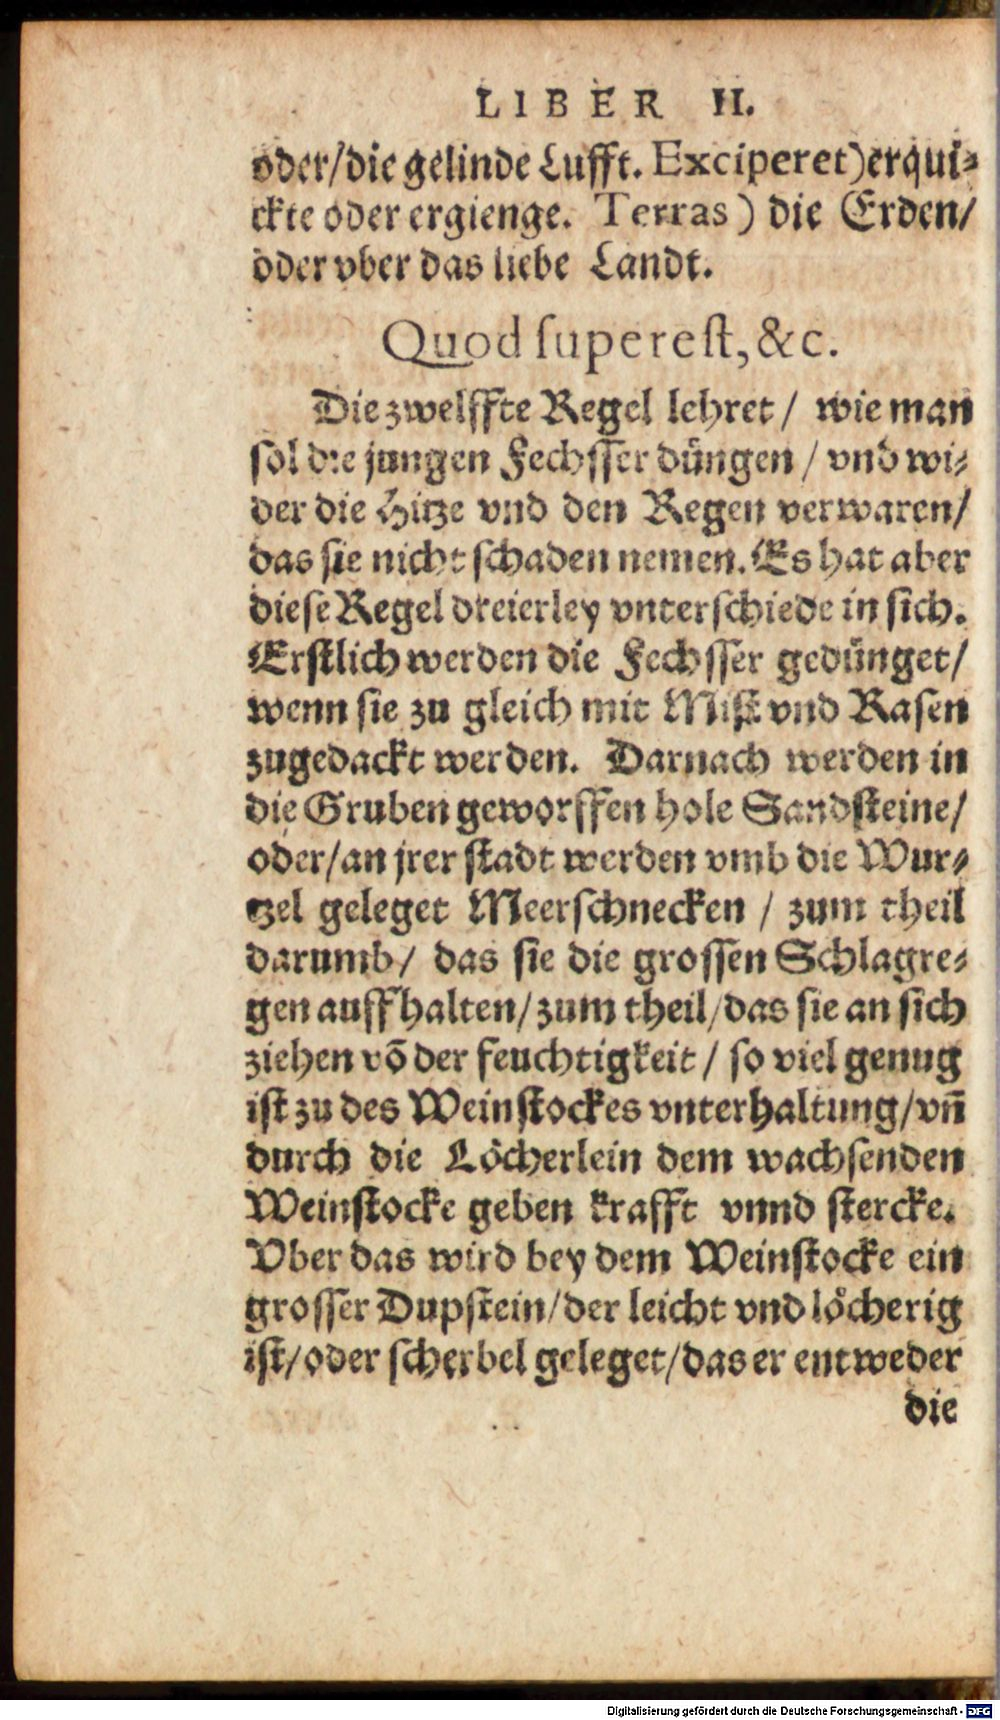 LIBER II.
oder/die gelinde Lufft. Exciperet)erqui⸗
ckte oder ergienge. Terras) die Erden/
oder vber das liebe Landt.
Quod ſupereſt, &c.
Die zwelffte Regel lehret/ wie man
sol die jungen Fechsser düngen/ vnd wi⸗
der die Hitze vnd den Regen verwaren/
das sie nicht schaden nemen. Es hat aber
diese Regel dreierley vnterschiede in sich.
Erstlich werden die Fechsser gedünget/
wenn sie zu gleich mit Mist vnd Rasen
zugedackt werden. Darnach werden in
die Gruben geworffen hole Sandsteine/
oder/an jrer stadt werden vmb die Wur⸗
tzel geleget Meerschnecken / zum theil
darumb/ das sie die grossen Schlagre⸗
gen auffhalten/zum theil/das sie an sich
ziehen võ der feuchtigkeit/ so viel genug
ist zu des Weinstockes vnterhaltung/vñ
durch die Löcherlein dem wachsenden
Weinstocke geben krafft vnnd stercke.
Vber das wird bey dem Weinstocke ein
grosser Dupstein/der leicht vnd löcherig
ist/oder scherbel geleget/das er entweder
die
Digitalisierung gefördert durch die Deutsche Forschungsgemeinschaft - DFG